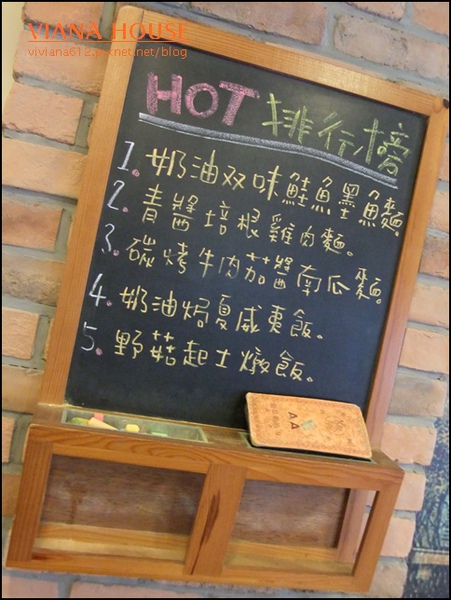 VIANA HOUSE
viviana612.pixnet.net/blog
HOT排行榜
1. 奶油双味鮭魚墨魚麵。
2. 青醬培根雞肉麵。
3. 碳烤牛肉茄醬南瓜麵。
4. 奶油焗夏威夷飯。
5. 野菇起士燉飯。
AA